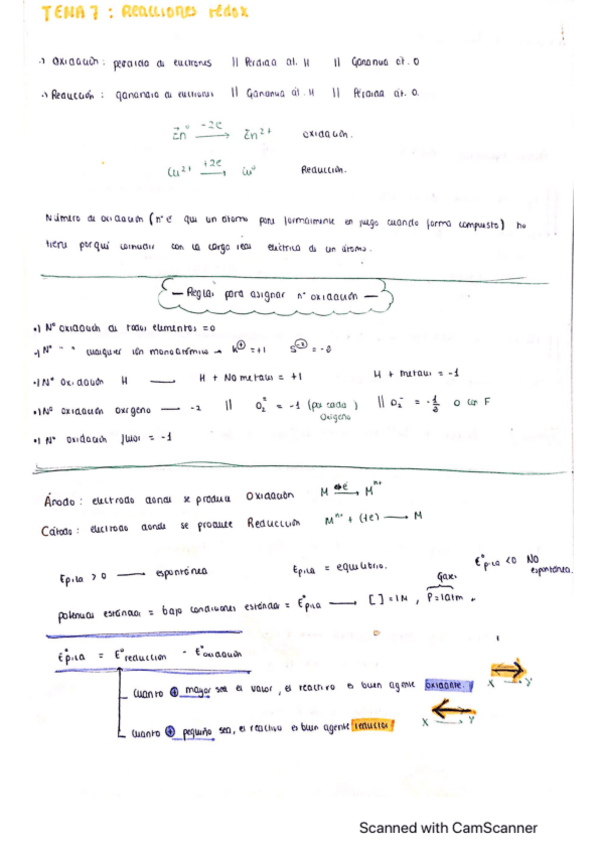 TEMA 7 : Reacciones redox
·) Oxidación : perdida de electrones || Perdida at. H || Ganancia at. O
·) Reducción : ganancia de electrones || Ganancia at. H || Pérdida at. O.
Zn⁰ —-2e→ Zn²⁺ oxidación.
Cu²⁺ —+2e→ Cu⁰ Reducción.
Número de oxidación (nº e⁻ que un átomo pone formalmente en juego cuando forma compuesto) no
tiene porqué coincidir con la carga real eléctrica de un átomo.
— Reglas para asignar nº oxidación —
·) Nº oxidación de todos elementos = 0
·) Nº " " cualquier ión monoatómico → K⁺ = +1 S
·) Nº Oxidación H — H + No metales = +1 H + metales = -1
·) Nº oxidación oxígeno — -2 || O₂⁼ = -1 (por cada oxígeno) || O₂⁻ = -1/2 O con F
·) Nº oxidación fluor = -1
Ánodo : electrodo donde se produce Oxidación M → Mⁿ⁺
Cátodo : electrodo donde se produce Reducción Mⁿ⁺ + (+e) → M
Epila > 0 → espontánea Epila = equilibrio. E°pila < 0 NO espontánea.
Gases
potencial estándar = bajo condiciones estándar = E°pila → [ ] = 1M , P = 1atm.
E°pila = E°reducción - E°oxidación
Cuanto ⊕ mayor sea el valor, el reactivo es buen agente oxidante. X → Y
Cuanto ⊕ pequeño sea, el reactivo es buen agente reductor X Y
Scanned with CamScanner